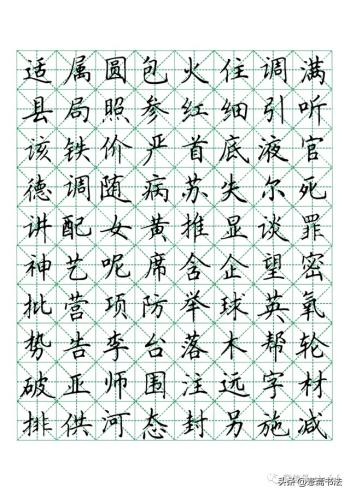 适属圆包火住调满
县局照参红细引听
该铁价严首底液官
德调随病苏失尔死
讲配女黄推显谈罪
神艺呢席含企望密
批营项防举球英氧
势告李台落木帮轮
破亚师围注远字材
排供河态封另施减
头条
书法